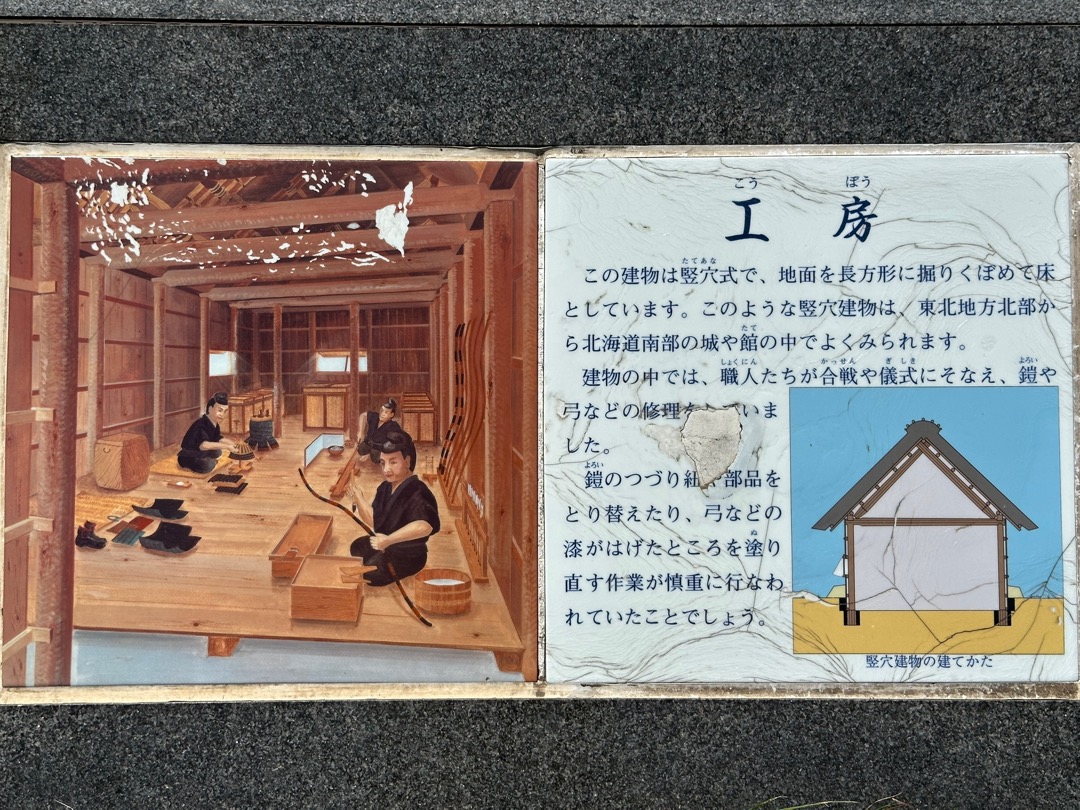 こう ぼう
工 房
たてあな
この建物は竪穴式で、地面を長方形に掘りくぼめて床
としています。このような竪穴建物は、東北地方北部か
たて
ら北海道南部の城や館の中でよくみられます。
しょくにん かっせん ぎしき よろい
建物の中では、職人たちが合戦や儀式にそなえ、鎧や
弓などの修理を いま
した。
よろい
鎧のつづり組 部品を
とり替えたり、弓などの
ぬ
漆がはげたところを塗り
直す作業が慎重に行なわ
れていたことでしょう。
竪穴建物の建てかた